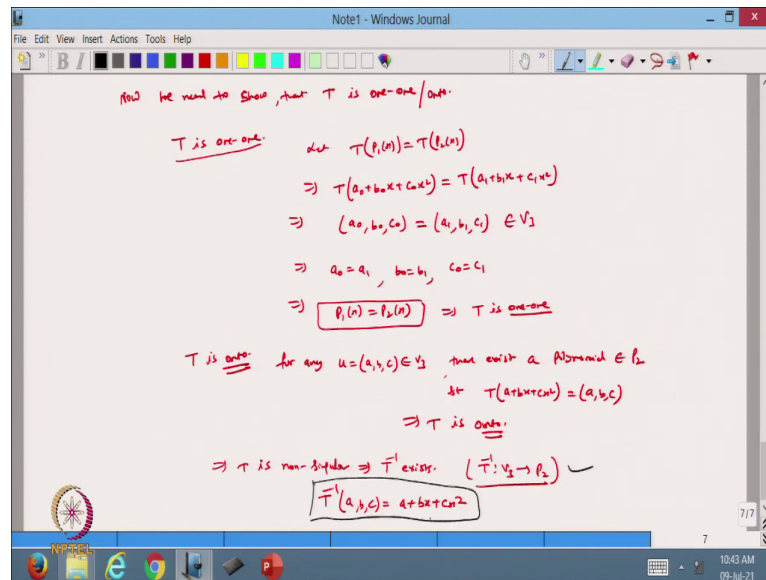 Note1 - Windows Journal
File Edit View Insert Actions Tools Help
Now we need to show, that T is one-one/onto.
T is one-one. Let T(P₁(x)) = T(P₂(x))
⇒ T(a₀+b₀x+c₀x²) = T(a₁+b₁x+c₁x²)
⇒ (a₀,b₀,c₀) = (a₁,b₁,c₁) ∈ V₃
⇒ a₀=a₁, b₀=b₁, c₀=c₁
⇒ P₁(x) = P₂(x) ⇒ T is one-one
T is onto. for any u=(a,b,c) ∈ V₃ then exist a Polynomial ∈ P₂
st T(a+bx+cx²) = (a,b,c)
⇒ T is onto.
⇒ T is non-singular ⇒ T⁻¹ exists. (T⁻¹: V₃ → P₂)
T⁻¹(a,b,c) = a+bx+cx²
7/7
NPTEL
7
10:43 AM
09-Jul-21